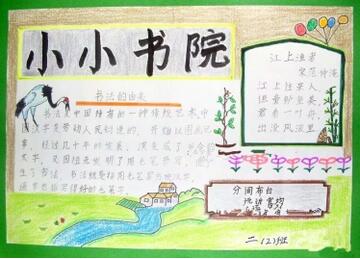 小小书院
书法的由来
书法是中国特有的一种传统艺术中
国汉字是劳动人民创造的,开始以图画记
事,经过几千年的发展,演变成了
文字,又因祖先发明了用毛笔书写,便产
生了书法,书法就是指用毛笔书写汉字,
江上渔者
宋范仲淹
江上往来人,
但爱鲈鱼美,
君看一叶舟,
出没风波里
分间布白
二(2)班